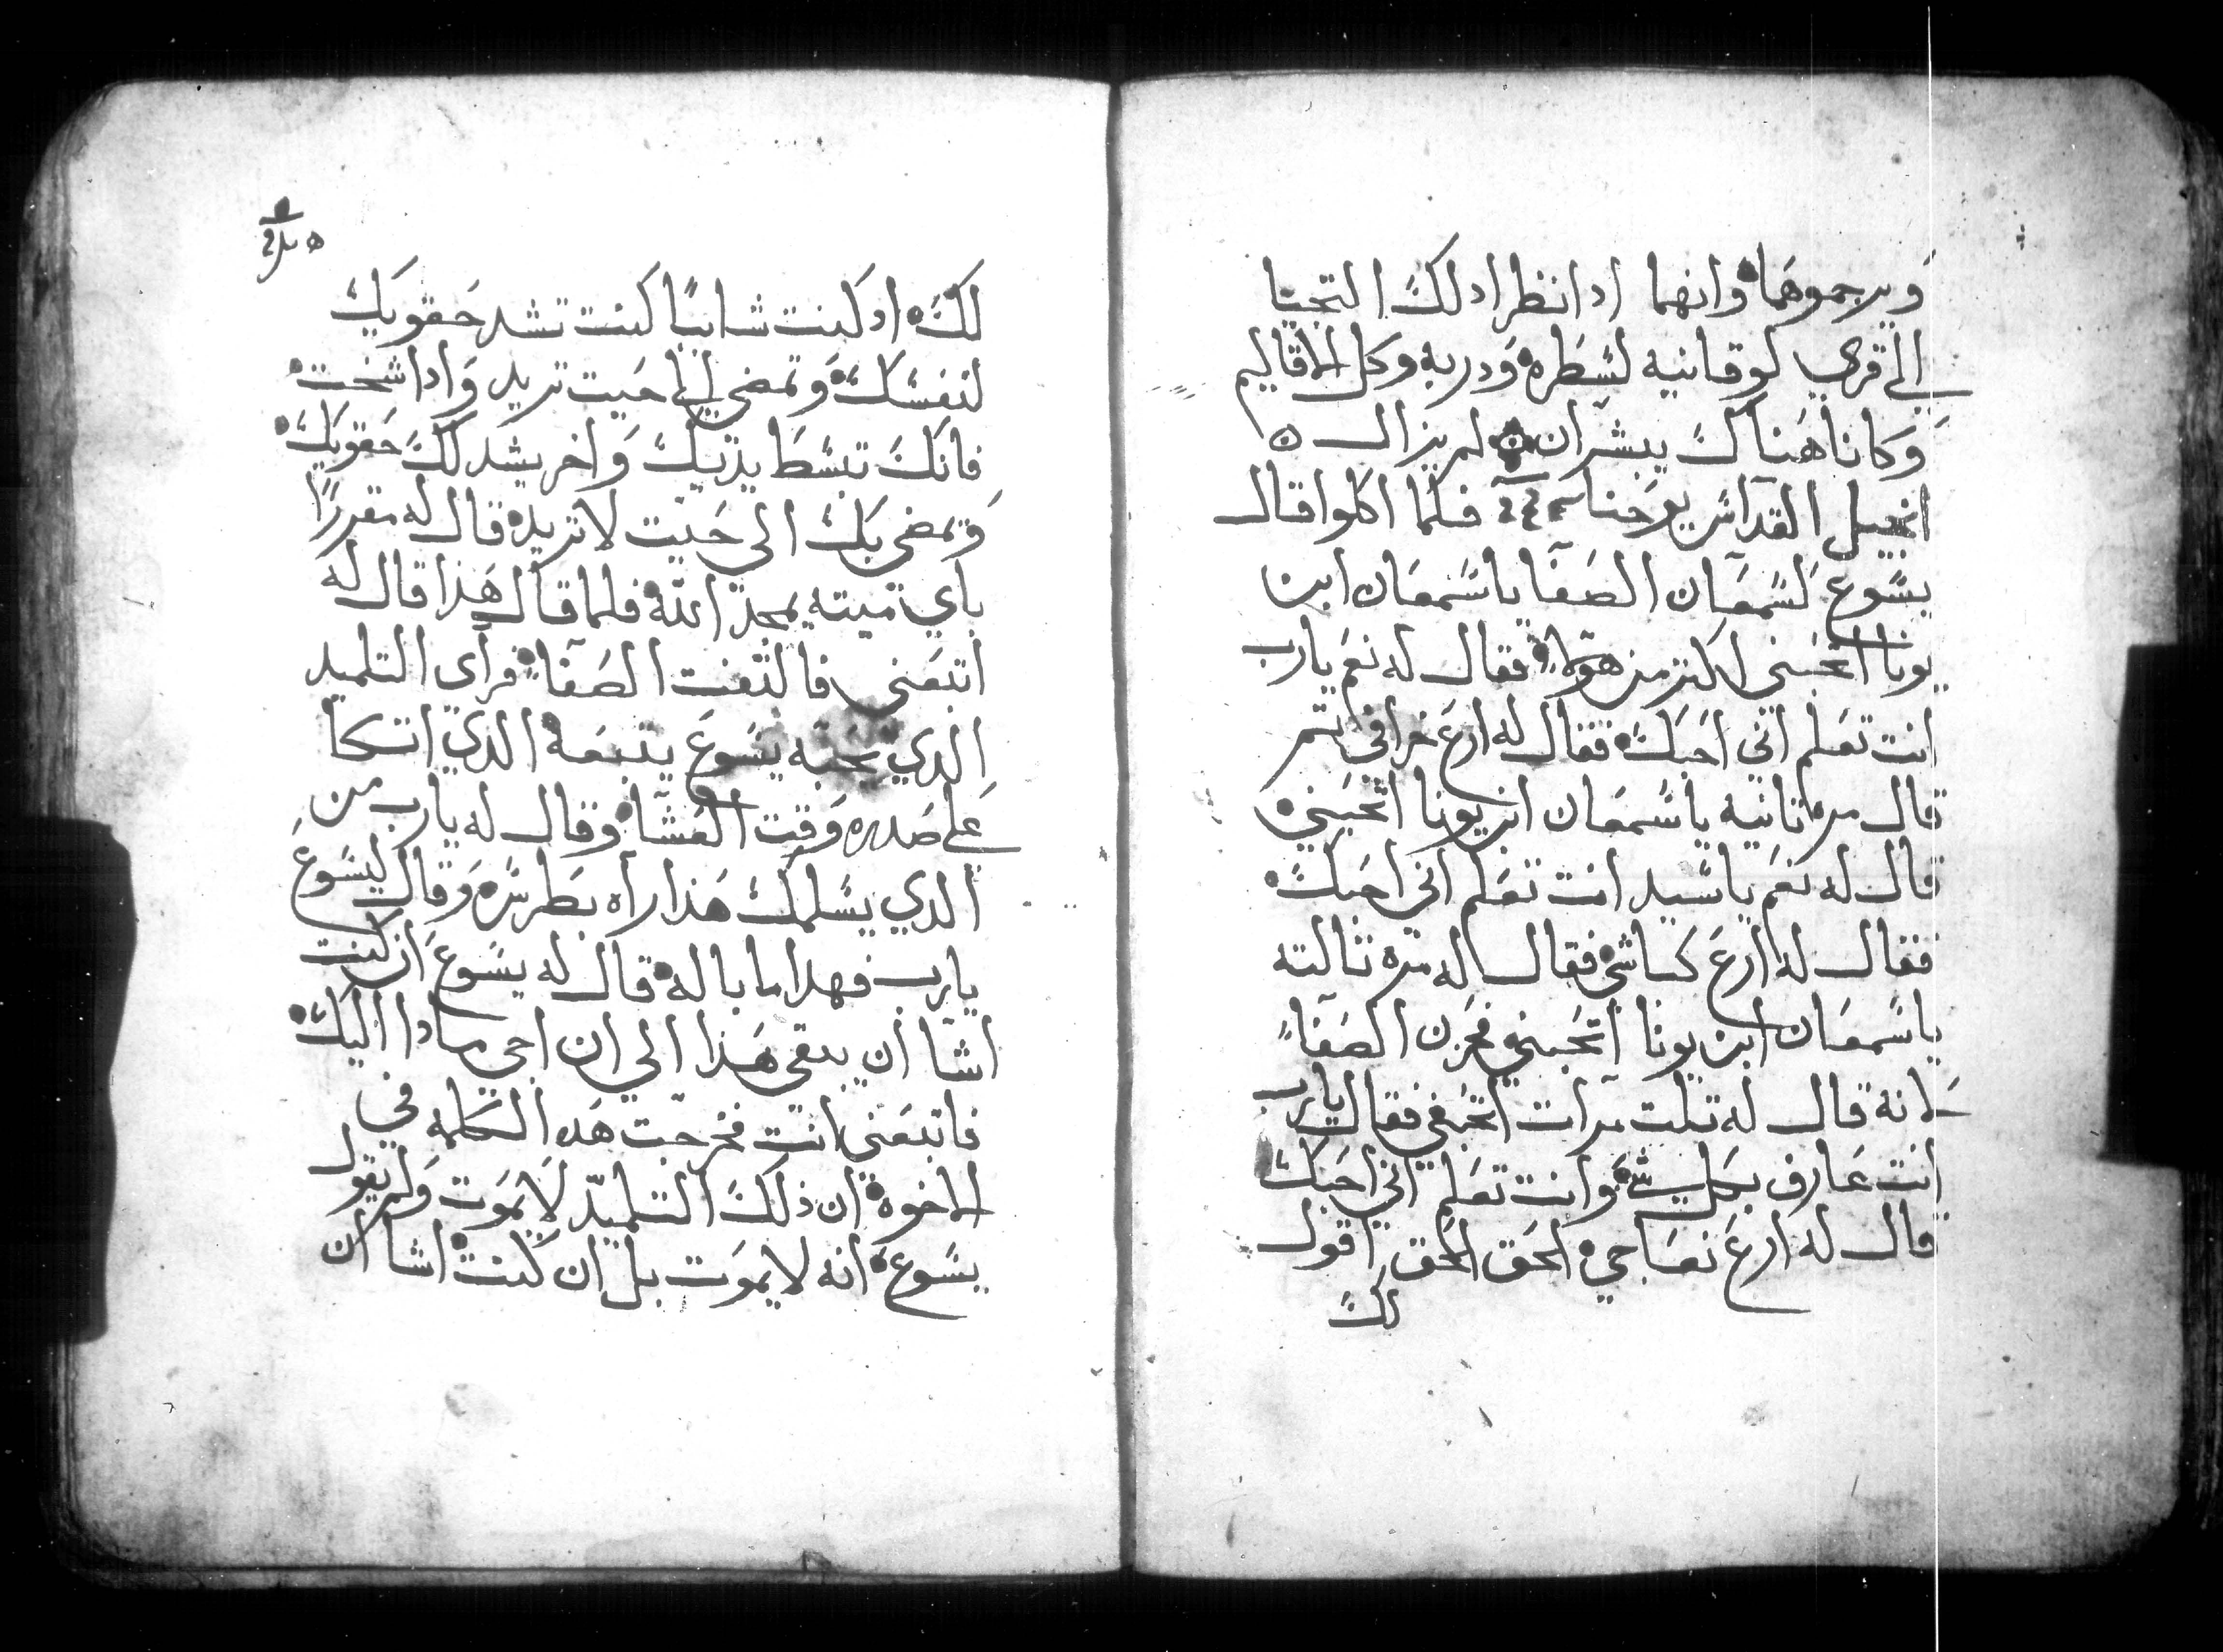 ويرجموهما وانهما ادا نظرا دلك التجيا
الى قري لوقانيه لسطره ودربه وكل الاقاليم
وكانا هناك يبشران لم يزال
انجيل القداس يوحنا فلما اكلوا قال
يسوع لسمعان الصفا ياسمعان ابن
يونا اتحبني اكتر من هولا فقال له نعم يارب
انت تعلم اني احبك فقال له ارع خرافي تم
قال مره تانيه ياسمعان ابن يونا اتحبني
قال له نعم ياسيد انت تعلم اني احبك
فقال له ارع كباشي فقال له مره تالته
ياسمعان ابن يونا اتحبني فحزن الصفا
لانه قال له تلت مرات اتحبني فقال يارب
انت عارف بكل شي وانت تعلم اني احبك
قال له ارع نعاجي الحق الحق اقول
لك
لك اد كنت شابا كنت تشد حقويك
لنفسك وتمضي الي حيت تريد وادا شخت
فانك تبسط يديك واخر يشد لك حقويك
وتمضي بك الى حيت لا تريد قال له مقررا
باي ميته يمجد الله فلما قال هذا قال له
اتبعني فالتفت الصفا فراي التلميد
الدي يحبه يسوع يتبعه الدي اتكا
علي صدره وقت العشا وقال له يارب من
الدي يسلمك هذا راه بطرس وقال ليسوع
يارب فهدا ما باله قال له يسوع ان كنت
اشا ان يبقي هذا الي ان اجي مادا اليك
فاتبعني انت فخرجت هده الكلمه في
الاخوه ان ذلك التلميد لا يموت ولم يقول
يسوع انه لا يموت بل ان كنت اشا ان